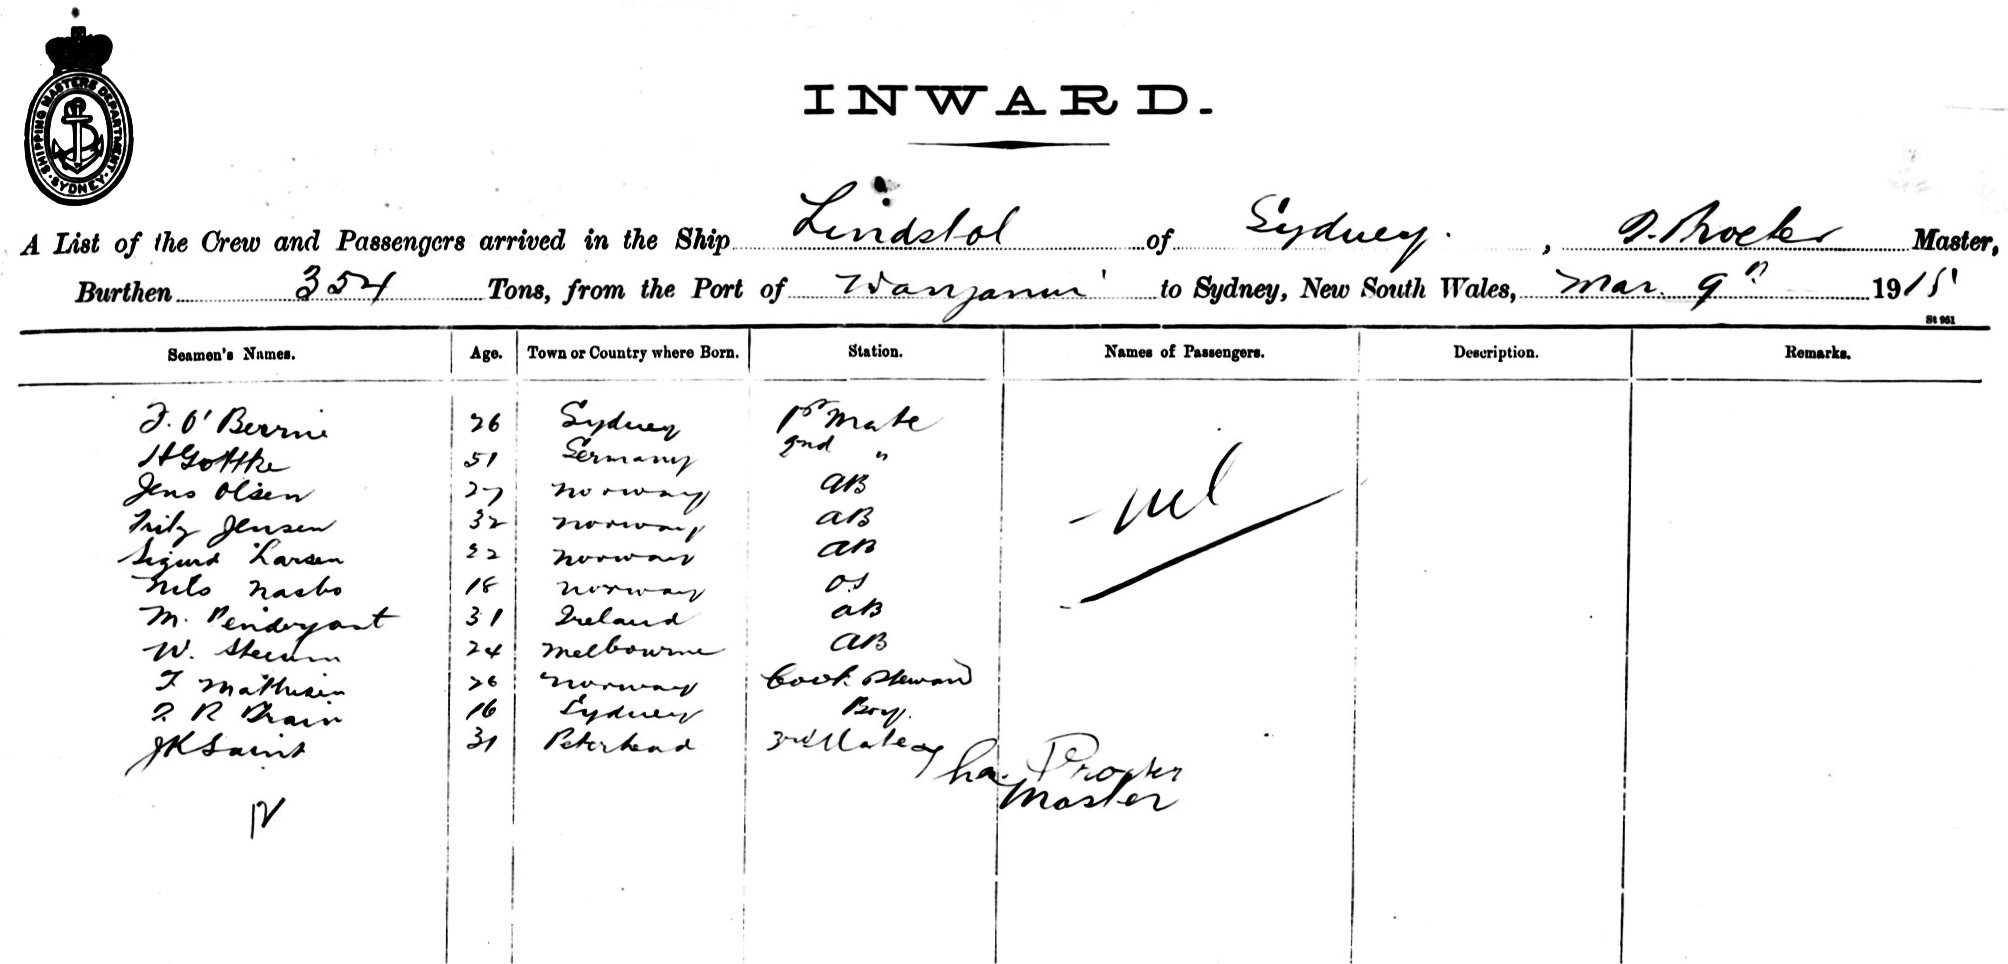 SHIPPING MASTERS DEPARTMENT. SYDNEY.
INWARD.
A List of the Crew and Passengers arrived in the Ship Lindstol of Sydney. , Procter Master,
Burthen 354 Tons, from the Port of Wanganui to Sydney, New South Wales, Mar. 9th 1915
St 951
Seamen's Names. Age. Town or Country where Born. Station. Names of Passengers. Description. Remarks.
F. O'Berrie 26 Sydney 1st Mate
H Gottke 51 Germany 2nd "
Jens Olsen 27 Norway AB
Fritz Jensen 32 Norway AB
Sigurd Larsen 22 Norway AB
Nils Nasbo 18 Norway OS
M. 31 Ireland AB
W. 24 Melbourne AB
F Mathisen 26 Norway Cook Steward
R Brain 16 Sydney Boy.
JK Saint 31 Peterhead 3rd Mate
- nil
Cha. Procter
Master
12